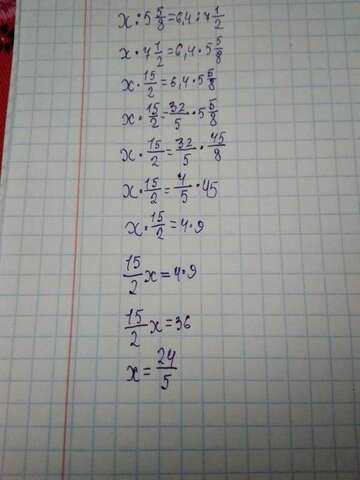 x : 5 5/8 = 6,4 : 7 1/2
x · 7 1/2 = 6,4 · 5 5/8
x · 15/2 = 6,4 · 5 5/8
x · 15/2 = 32/5 · 5 5/8
x · 15/2 = 32/5 · 45/8
x · 15/2 = 4/5 · 45
x · 15/2 = 4 · 9
15/2 x = 4 · 9
15/2 x = 36
x = 24/5